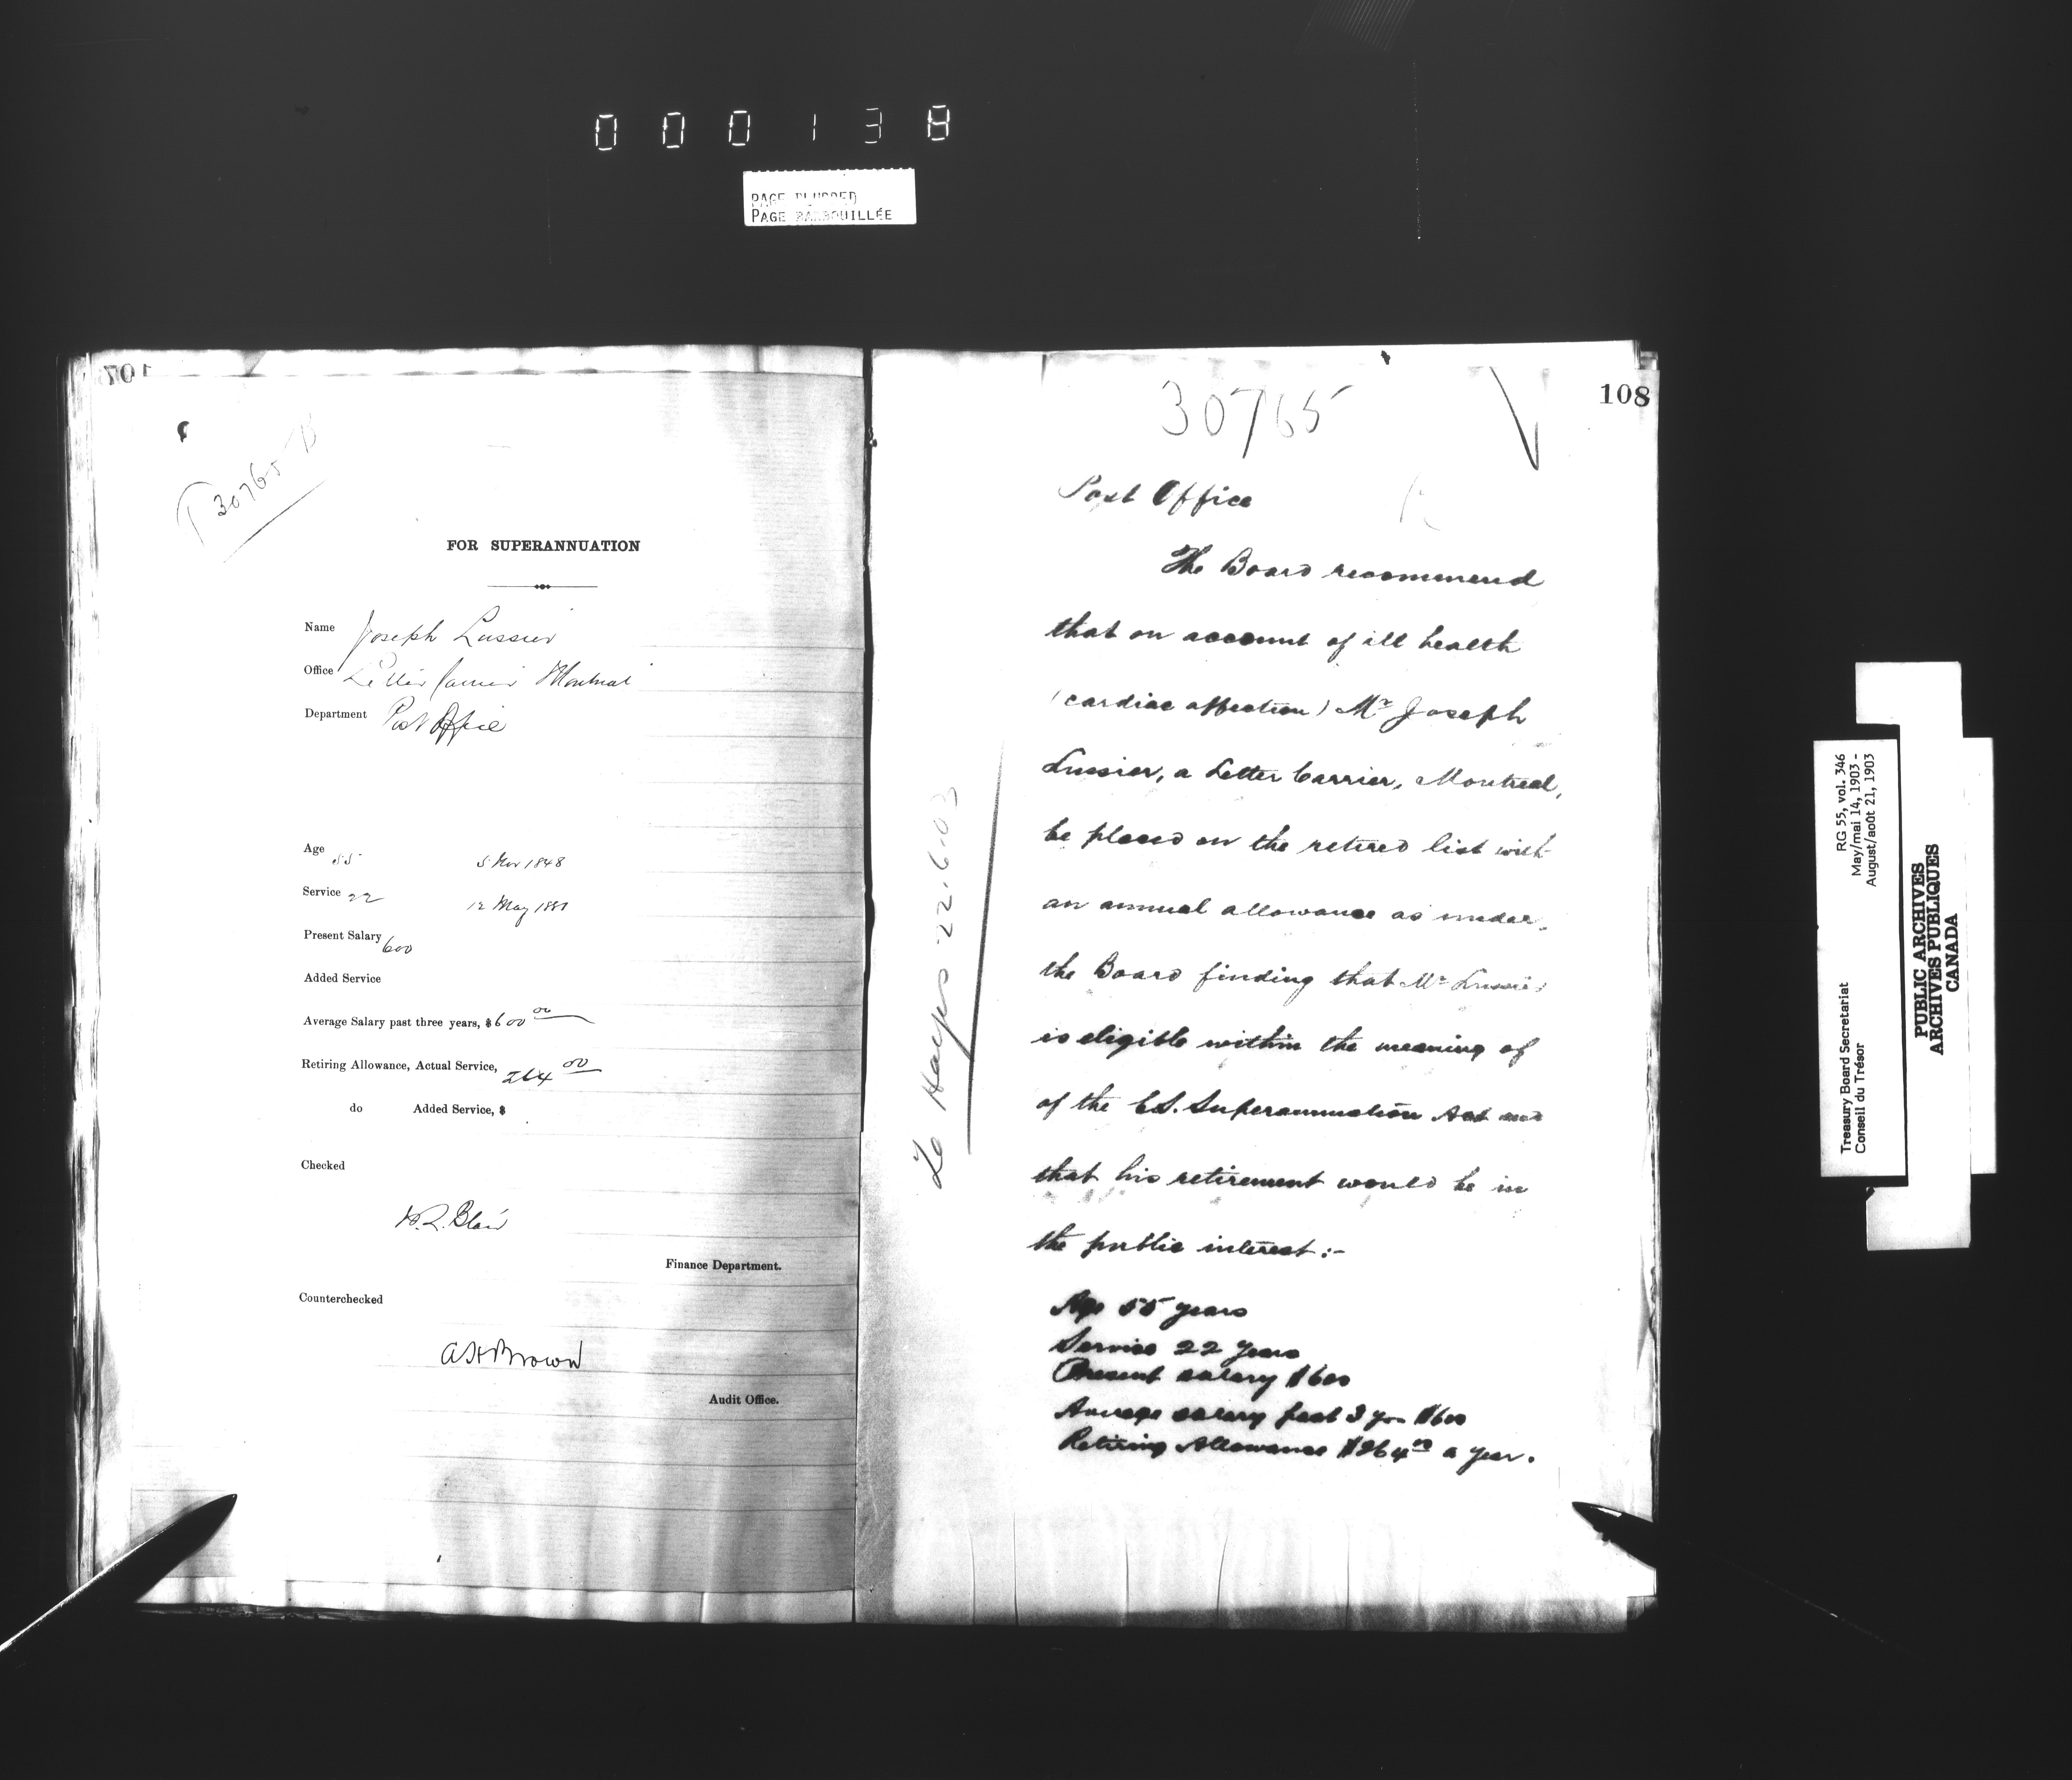 000138
PAGE
PAGE BARBOUILLÉE
T 30765 B
FOR SUPERANNUATION
Name Joseph Lussier
Office Letter Carrier Montreal
Department Post Office
Age 55 5 1848
Service 22 12 May 1881
Present Salary 600
Added Service
Average Salary past three years, $600 00
Retiring Allowance, Actual Service, 264 00
do Added Service, $
Checked
Blair
Finance Department.
Counterchecked
Brown
Audit Office.
108
30765
Post Office
The Board recommend
that on account of ill health
(cardiac affection) Mr Joseph
Lussier, a Letter Carrier, Montreal,
be placed on the retired list with
an annual allowance as under.
the Board finding that Mr Lussier
is eligible within the meaning of
of the C.S. Superannuation Act and
that his retirement would be in
the public interest :-
Age 55 years
Service 22 years
Present salary $600
Average salary past 3 yrs $600
Retiring Allowance $264 00 a year.
22.6.03
Treasury Board Secretariat RG 55, vol. 346
Conseil du Trésor May/mai 14, 1903 -
August/août 21, 1903
PUBLIC ARCHIVES
ARCHIVES PUBLIQUES
CANADA